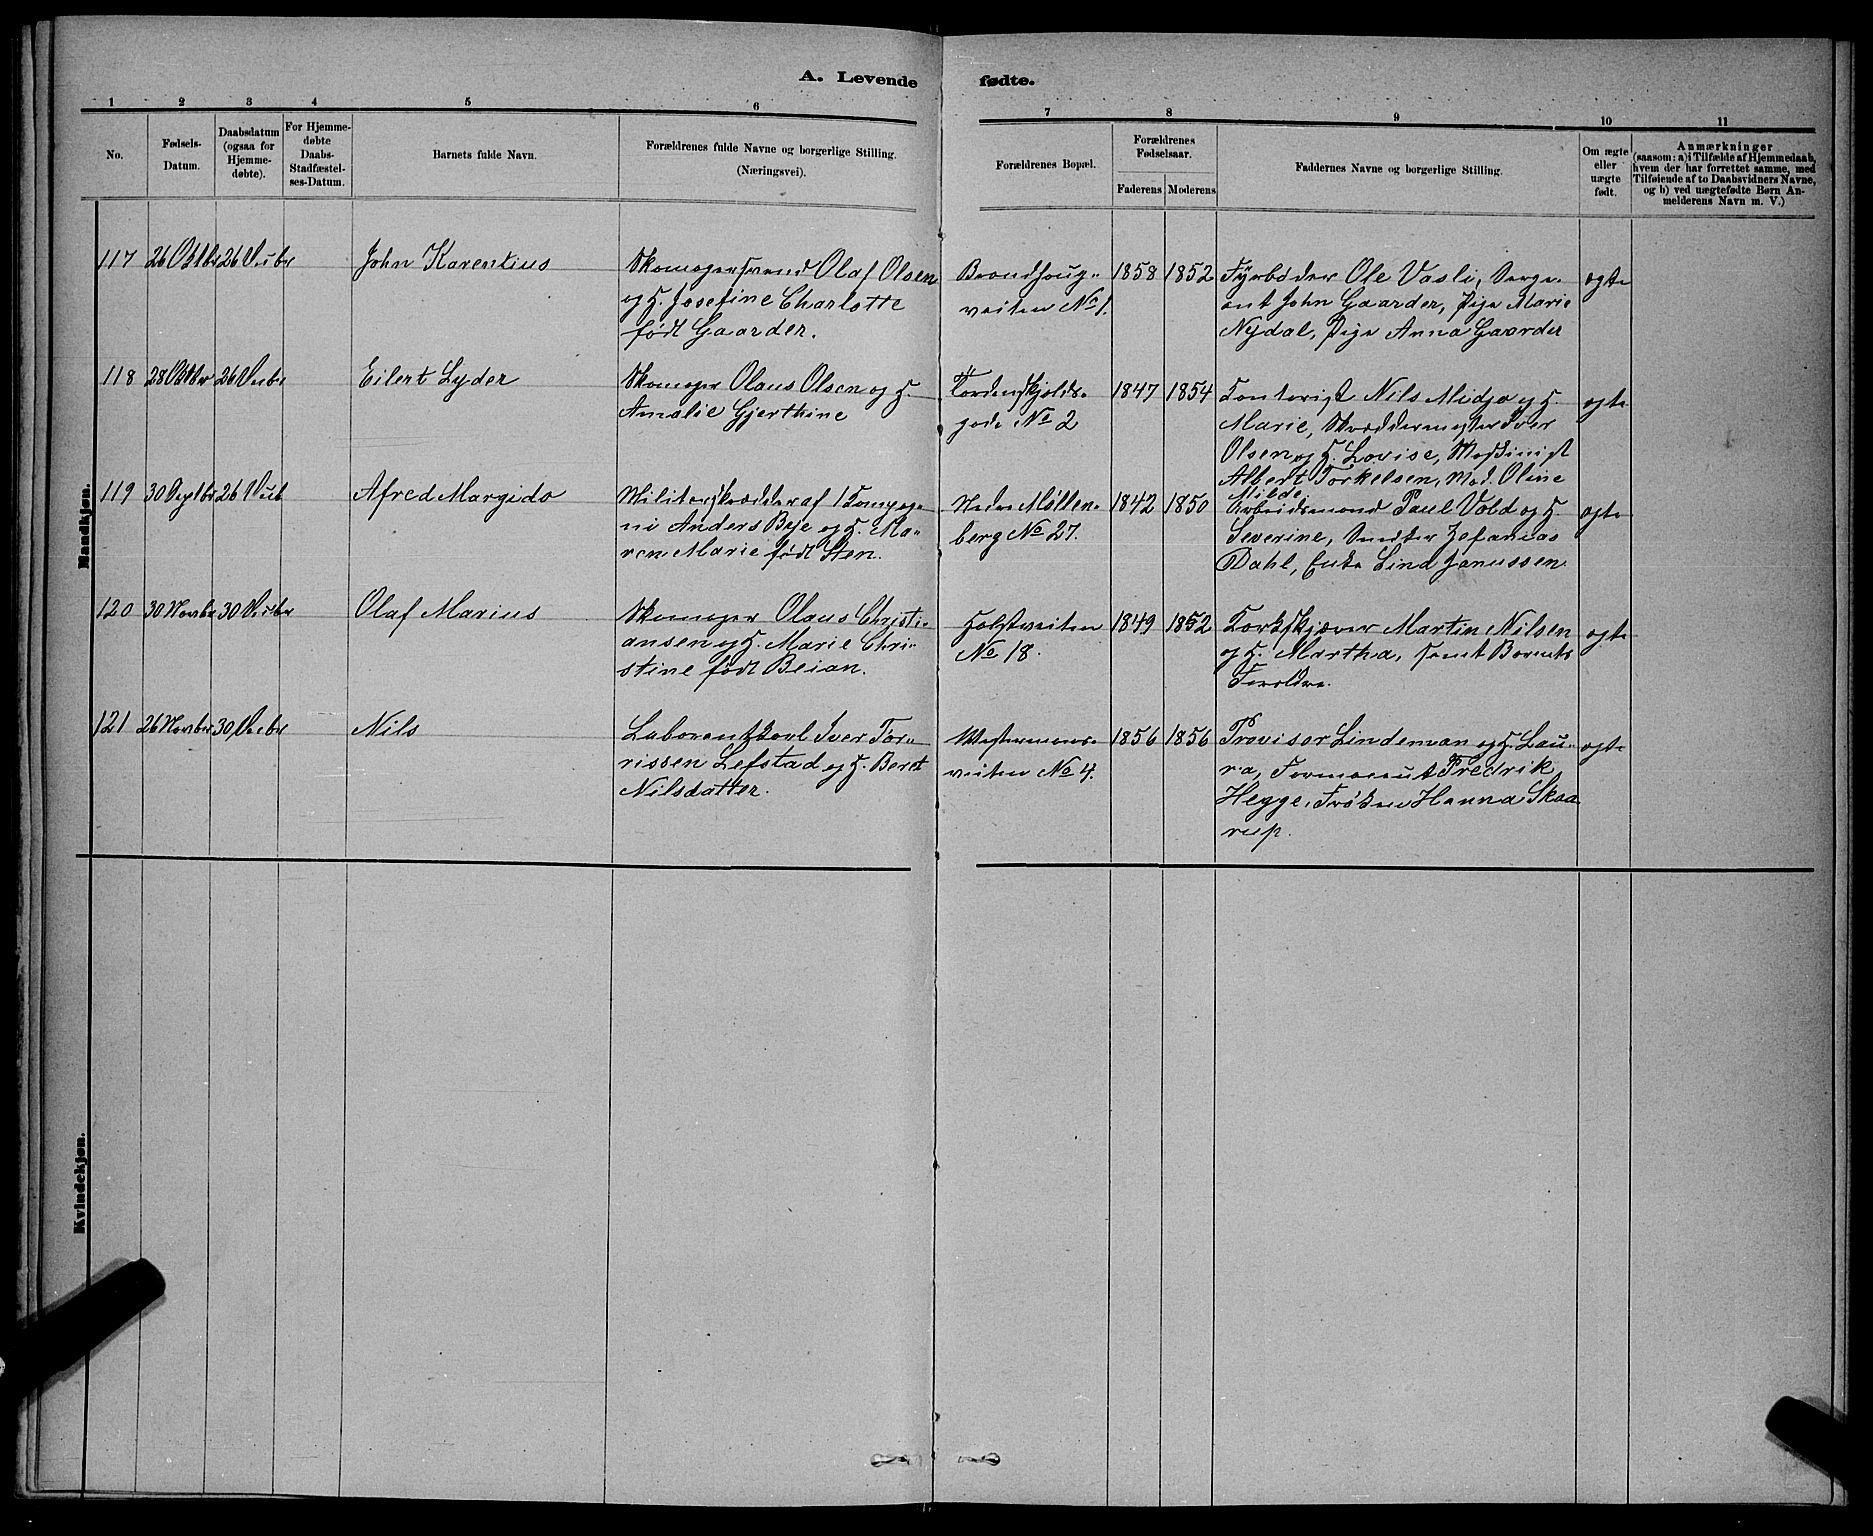 A. Levende fødte.
1 2 3 4 5 6 7 8 9 10 11
No.
Fødsels-
Datum.
Daabsdatum
(ogsaa for
Hjemme-
døbte).
For Hjemme-
døbte
Daabs-
Stadfæstel-
ses-Datum.
Barnets fulde Navn.
Forældrenes fulde Navne og borgerlige Stilling.
(Næringsvei).
Forældrenes Bopæl.
Forældrenes
Fødselsaar.
Faderens Moderens
Faddernes Navne og borgerlige Stilling.
Om ægte
eller
uægte
født.
Anmærkninger
(saasom: a) i Tilfælde af Hjemmedaab,
hvem der har forrettet samme, med
Tilføiende af to Daabsvidners Navne,
og b) ved uægtefødte Børn An-
melderens Navn m. V.)
Mandkjøn.
117 26 Oktbr 26 Decbr John Karentius
Skomagersvend Olaf Olsen
og H. Josefine Charlotte
født Gaarder.
Brandhoug-
veiten No 1.
1858 1852
Fyrbøder Ole Vasli, Serge-
ant John Gaarder, Pige Marie
Nydal, Pige Anna Gaarder
ægte
118 28 Oktbr 26 Decbr Eilert Lyder
Skomager Olaus Olsen og H.
Amalie Gjerthine
Tordenskjolds-
gade No 2
1847 1854
Kontorist Nils Midjo og H.
Marie, Skræddermester Iver
Olsen og H. Lovise, Maskinist
Albert Torkelsen, Mad. Oline
Milde.
ægte
119 30 Septbr 26 Decb Afred Margido
Militærskrædder af 1 Kompag-
ni Anders Bye og H. Ma-
ren Marie født Sten.
Nedre Møllen-
berg No 27.
1842 1850
Arbeidsmand Paul Vold og H
Severine, Snedker Zefanias
Dahl, Enke Lind Janussen
ægte
120 30 Novbr 30 Decbr Olaf Marius
Skomager Olaus Christi-
ansen og H. Marie Chri-
stine født Beian.
Holstveiten
No 18.
1849 1852
Korkskjærer Martin Nilsen
og H. Martha, samt Barnets
Forældre.
ægte
121 26 Novbr 30 Decbr Nils
Laborantkarl Iver Tor-
rissen Lefstad og H. Beret
Nilsdatter.
Westermans-
veiten No 4.
1856 1856
Provisor Lindeman og H. Lau-
ra, Farmaceut Fredrik
Hegge, Frøken Hanna Skaa
rup.
ægte
Kvindekjøn.